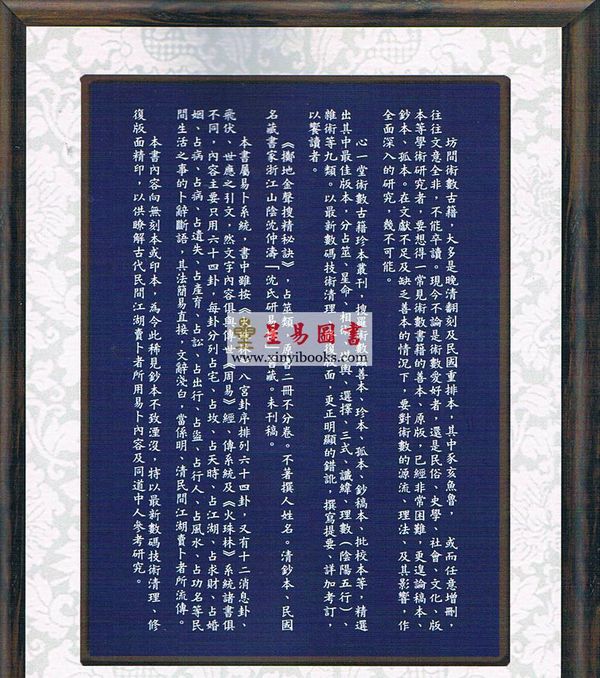 坊間術數古籍，大多是晚清翻刻及民國重排本，其中豕亥魚魯，或而任意增刪，
往往文意全非，不能卒讀。現今不論是術數愛好者，還是民俗、史學、社會、文化、版
本等學術研究者，要想得一常見術數書籍的善本、原版，已經非常困難，更遑論稿本、
鈔本、孤本。在文獻不足及缺乏善本的情況下，要對術數的源流、理法、及其影響，作
全面深入的研究，幾不可能。
心一堂術數古籍珍本叢刊，搜羅術數善本、珍本、孤本、鈔稿本、批校本等，精選
出其中最佳版本，分占筮、星命、相術、選擇、三式、讖緯、理數（陰陽五行）、
雜術等九類。以最新數碼技術清理、修復版面，更正明顯的錯訛，撰寫提要、詳加考訂，
以饗讀者。
《擲地金聲搜精秘訣》，占筮類，原書二冊不分卷。不著撰人姓名。清鈔本、民國
名藏書家浙江山陰沈仲濤「沈氏研易藏。未刊稿。
本書屬易卜系統，書中雖按《八宮卦序排列六十四卦，又有十二消息卦、
飛伏、世應之引文，然文字內容俱與傳世《周易》經、傳系統及《火珠林》系統諸書俱
不同，內容主要只用六十四卦，每卦分列占宅、占坟、占天時、占江湖、占求財、占婚
姻、占病、占遺失、占產育、占訟、占出行、占盜、占行人、占風水、占功名等民
間生活之事的卜辭斷語，具法簡易直接，文辭淺白，當係明、清民間江湖賣卜者所流傳。
本書內容向無刻本或印本，為令此稀見鈔本不致湮沒，特以最新數碼技術清理、修
復版面精印，以供瞭解古代民間江湖賣卜者所用易卜內容及同道中人參考研究。
星易圖書
www.xinyibooks.com